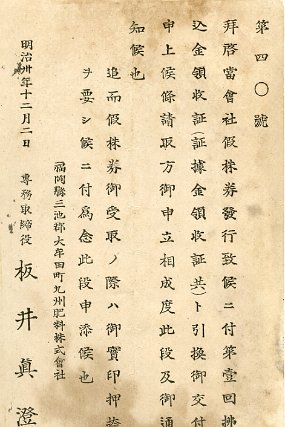 第四〇號
拜啓當會社假株券發行致候ニ付第壹回拂
込金領收証(証據金領收証共)ト引換御交付
申上候條請取方御申立相成度此段及御通
知候也
追而假株券御受取ノ際ハ御實印押捺
ヲ要シ候ニ付爲念此段申添候也
福岡縣三池郡大牟田町九州肥料株式會社
明治卅年十二月二日
專務取締役 板井眞澄